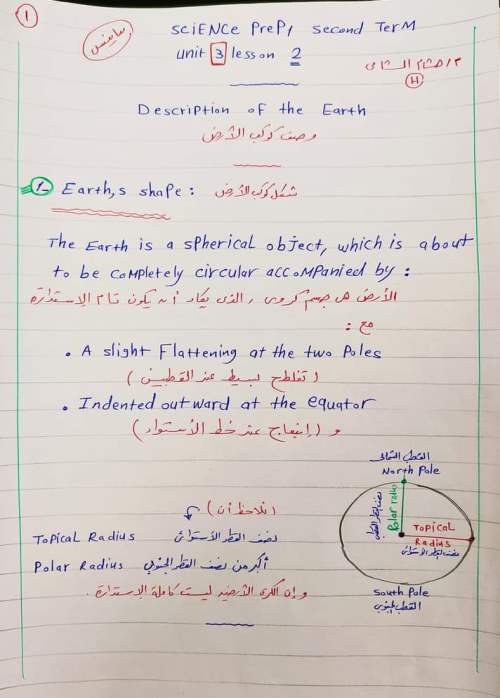 1
ساينس
science Prep, second Term
unit 3 lesson 2
م/هشام الشامى
H
Description of the Earth
وصف كوكب الأرض
1- Earth,s shape: شكل كوكب الأرض
The Earth is a spherical object, which is about
to be completely circular accompanied by:
الأرض هى جسم كروى, الذى يكاد أن يكون تام الإستدارة
مع :
. A slight Flattening at the two Poles
(تفلطح بسيط عند القطبين)
. Indented outward at the equator
و (إنبعاج عند خط الأستواء)
القطب الشمالى
North Pole
(نلاحظ أن)
Topical Radius نصف القطر الأستوائى
Polar Radius أكبر من نصف القطر الجنوبي
و إن الكرة الأرضية ليست كاملة الإستدارة.
نصف القطر القطبى
Polar radius
Topical
Radius
نصف القطر الأستوائى
South Pole
القطب الجنوبي